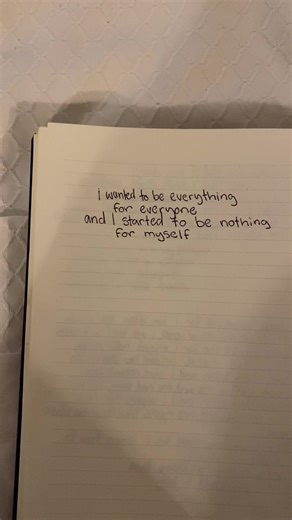 I wanted to be everything
for everyone
and I started to be nothing
for myself